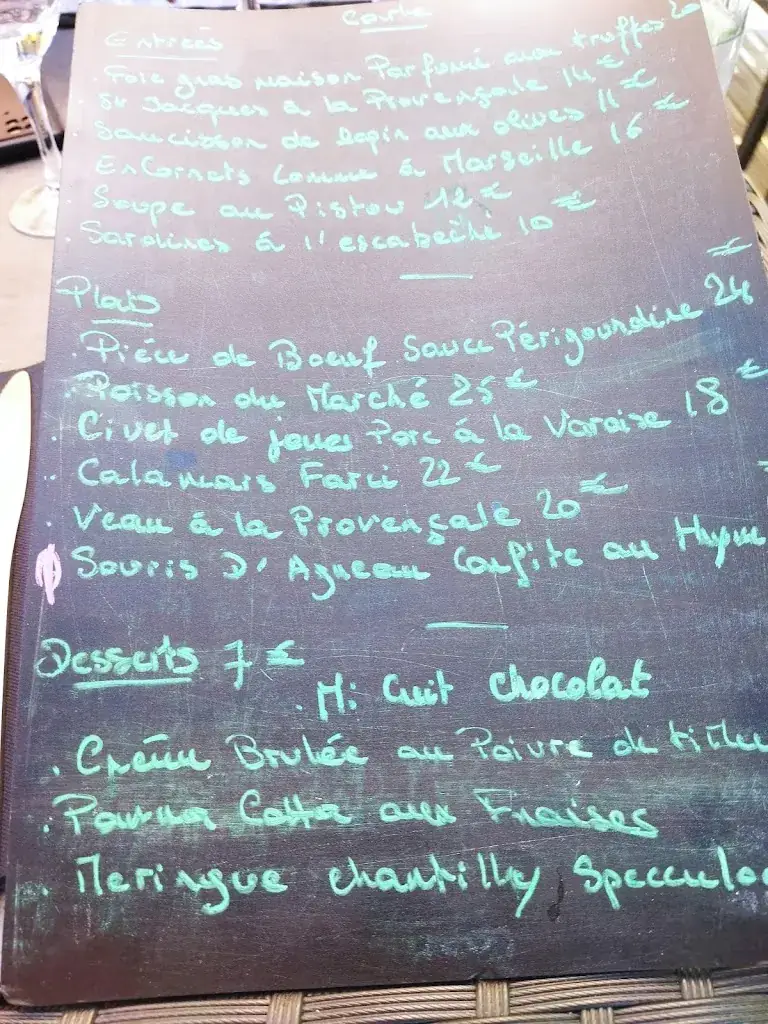 Carte
Entrées
. Foie gras maison Parfumé aux truffes 20
. St Jacques à la Provençale 14 €
. Saucisson de lapin aux olives 11 €
. Encornets comme à Marseille 16 €
. Soupe au Pistou 12 €
. Sardines à l'escabèche 10 €
Plats
. Pièce de Boeuf Sauce Périgourdine 24 €
. Poisson du Marché 25 €
. Civet de joues Porc à la Varoise 18 €
. Calamars Farci 22 €
. Veau à la Provençale 20 €
. Souris D'Agneau Confite au
Desserts 7 €
. Mi Cuit chocolat
. Crème Brulée au Poivre de
. Panna Cotta aux Fraises
. Meringue chantilly Speculo